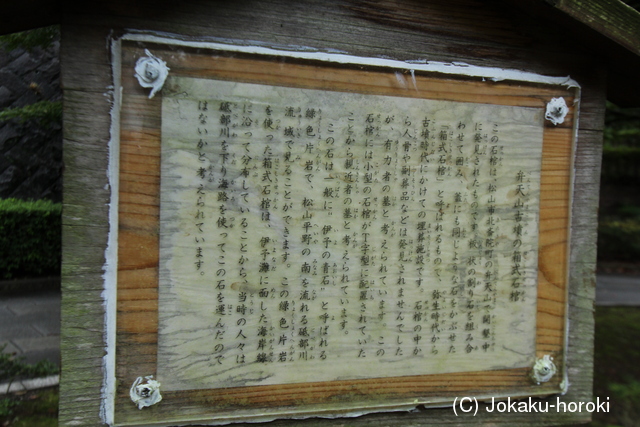 弁天山古墳の箱式石棺
この石棺は、松山市
の弁天山で開墾中
に発見されたもので、板状の割り石を組み合
わせて囲み、蓋にも同じように石をかぶせた
「箱式石棺」と呼ばれるもので、弥生時代から
古墳時代にかけての埋葬施設です。石棺の中か
ら人骨や副葬品などは発見されませんでした
が、有力者の墓と考えられています。この
石棺には小型の石棺が丁字型に配置されていた
ことから親近者の墓と考えられています。
この石は一般に「伊予の青石」と呼ばれる
緑色片岩で、松山平野の南を流れる砥部川
流域で見ることができます。この緑色片岩
を使った箱式石棺は、伊予灘に面した海岸線
に沿って分布していることから、当時の人々は
砥部川を下り海路を使ってこの石を運んだので
はないかと考えられています。
(C) Jokaku-horoki